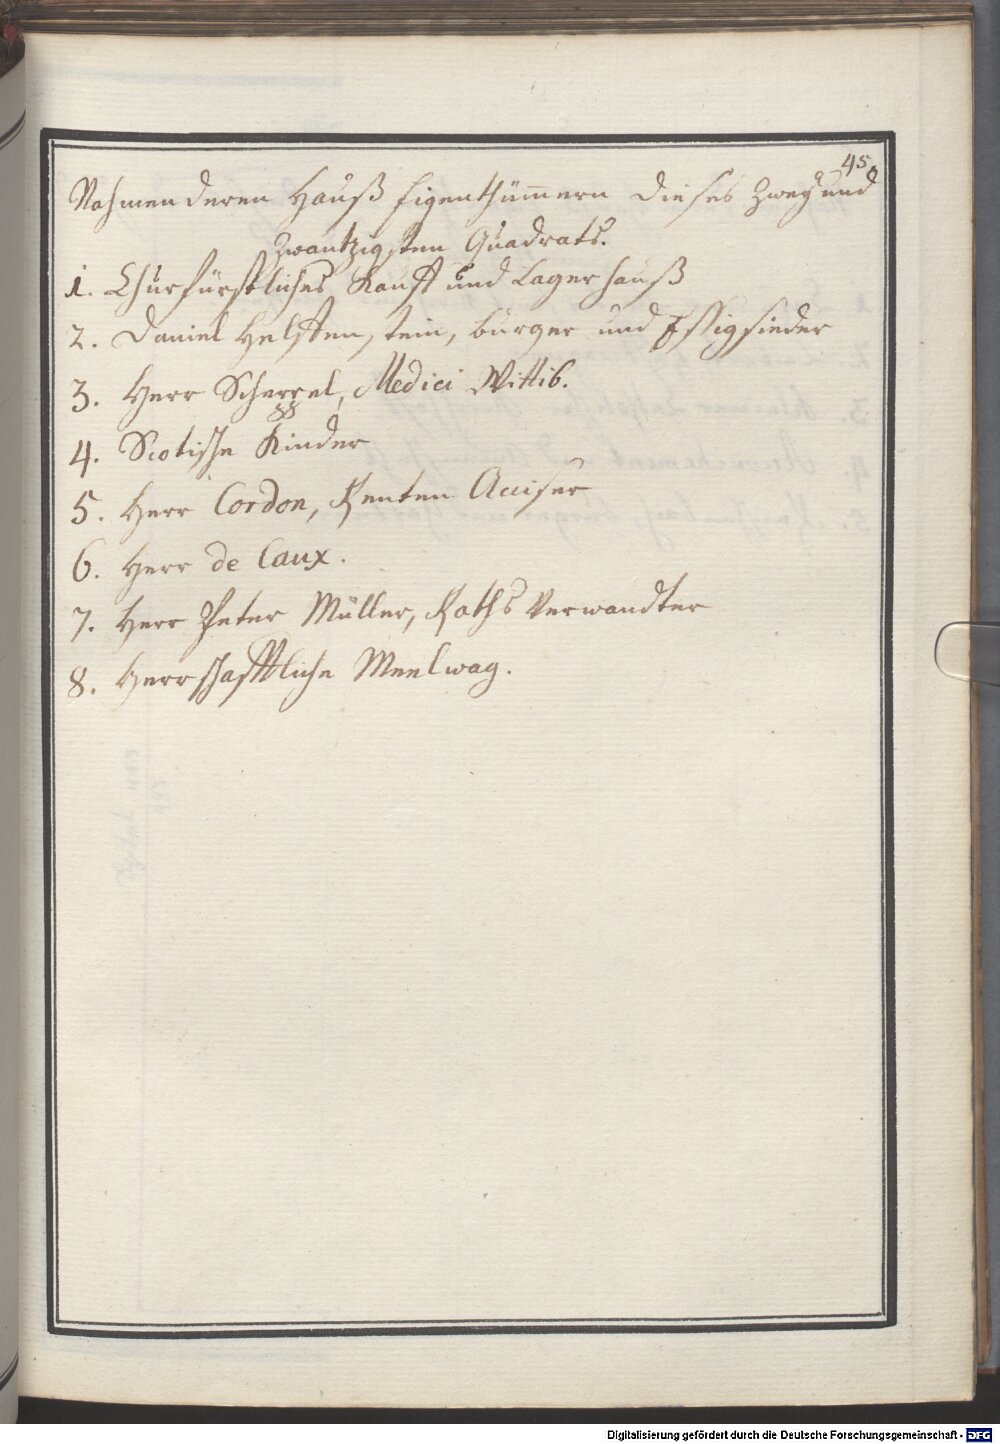 45.
Nahmen deren Hauß Eigenthümmern dieses Zwey und
Zwantzigsten Quadrats.
1. Churfürstliches Kauff und Lagerhauß
2. Daniel burger und Essigsieder
3. Herr Scheppel, Medici Wittib.
4. Scotische Kinder
5. Herr Cordon, Renten Acciser
6. Herr de Caux.
7. Herr Peter Müller, Raths Verwandter
8. Herrschafftliche Meelwag.
Digitalisierung gefördert durch die Deutsche Forschungsgemeinschaft - DFG